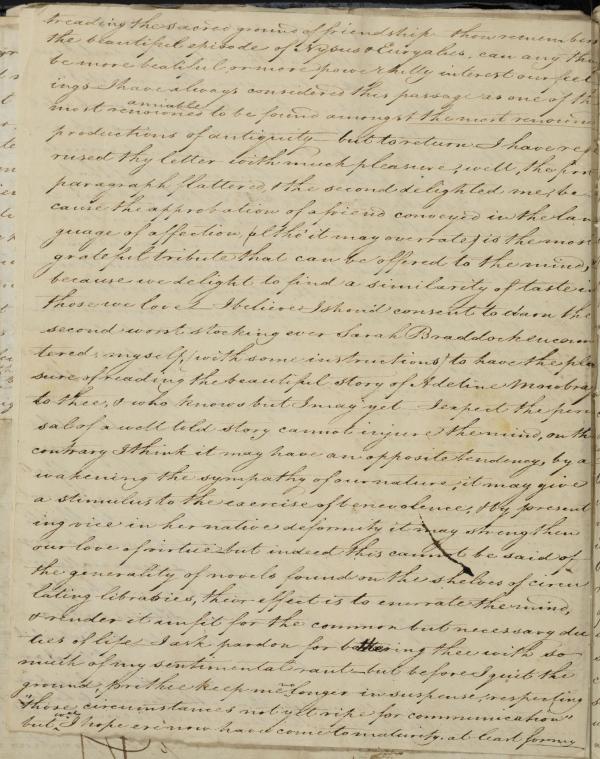 treading the sacred ground of friendship. thou remember
the beautiful episode of Nysus & Euryalus, can any thin
be more beatiful or more powerfully interest our feel
ings I have always considered this passage as one of th
amiable
most renowned to be found amongst the most renown
productions of antiquity but to return I have re
rused thy letter with much pleasure, well, the firs
paragraph flattered & the second delighted me, be
cause the approbation of a friend conveyed in the lan
guage of affection, (altho' it may overrate) is the most
grateful tribute that can be offered to the mind,
because we delight to find a similarity of taste in
those we love I believe I shou'd consent to darn the
second worst stocking ever Sarah Braddock encoun
tered, myself, (with some instructions) to have the plea
sure of reading the beautiful story of Adeline Mowbra
to thee, & who knows but I may yet I expect the peru
sal of a well told story cannot injure the mind, on th
contrary I think it may have an opposite tendency, by a
wakening the sympathy of our nature, it may give
a stimulus to the exercise of benevolence, & by present
ing vice in her native deformity it may strengthen
our love of virtue but indeed this cannot be said of
the generality of novels found on the shelves of circu
lating libraries, their effect is to enervate the mind,
& render it unfit for the common but necessary du
ties of life I ask pardon for bothering thee with so
much of my sentimental rant but before I quit the
ground, prithee keep me no longer in suspense, respecting
"those circumstances not yet ripe for communication"
but, I hope ere now have come to maturity. at least for my